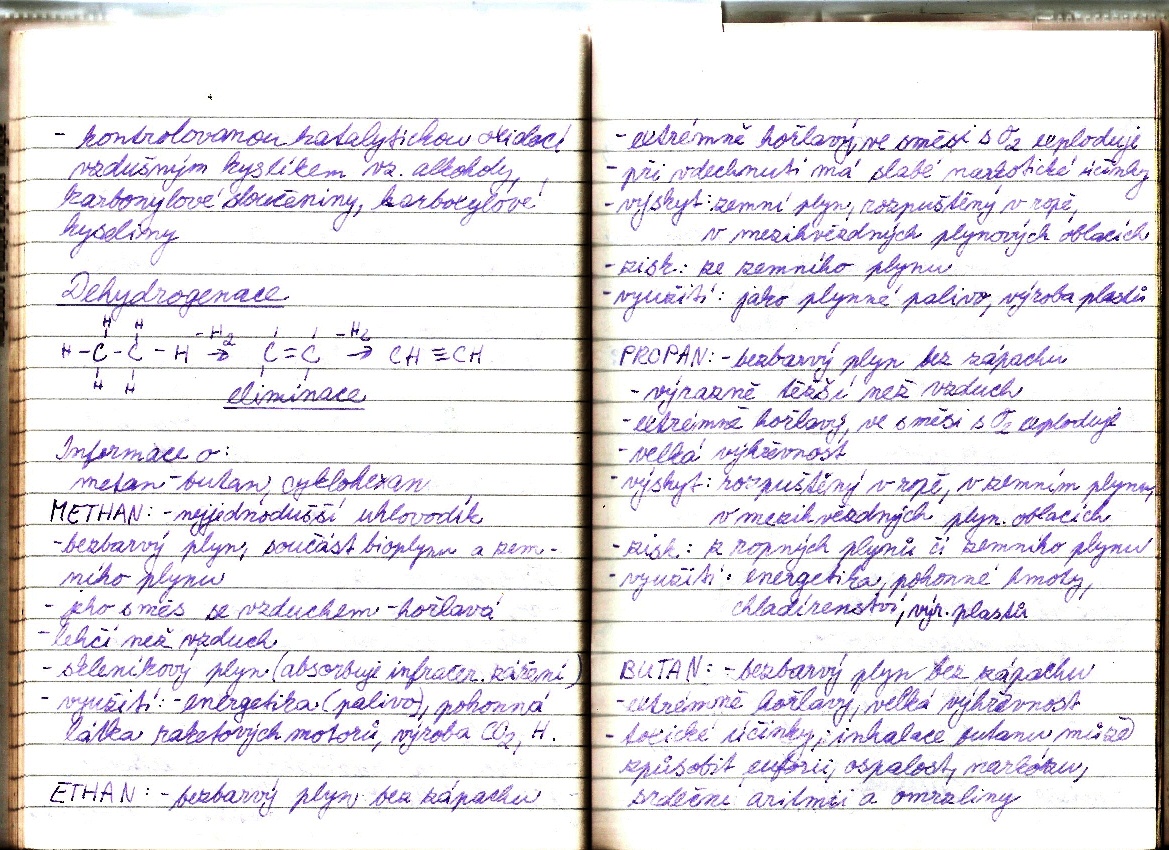 - kontrolovanou katalytickou oxidací
vzdušným kyslíkem vz. alkoholy,
karbonylové sloučeniny, karboxylové
kyseliny
Dehydrogenace
H H
H - C - C - H -H2 → C = C -H2 → CH ≡ CH
H H
eliminace
Informace o:
metan - butan, cyklohexan
METHAN: - nejjednodušší uhlovodík
- bezbarvý plyn, součást bioplynu a zem-
ního plynu
- jeho směs se vzduchem - hořlavá
- lehčí než vzduch
- skleníkový plyn (absorbuje infračer. záření)
- využití: - energetika (palivo), pohonná
látka raketových motorů, výroba CO2, H.
ETHAN: - bezbarvý plyn bez zápachu
- extrémně hořlavý, ve směsi s O2 exploduje
- při vdechnutí má slabé narkotické účinky
- výskyt: zemní plyn, rozpuštěný v ropě,
v mezihvězdných plynových oblacích
- zisk: ze zemního plynu
- využití: jako plynné palivo, výroba plastů
PROPAN: - bezbarvý plyn bez zápachu
- výrazně těžší než vzduch
- extrémně hořlavý, ve směsi s O2 exploduje
- velká výhřevnost
- výskyt: rozpuštěný v ropě, v zemním plynu,
v mezihvězdných plyn. oblacích
- zisk: z ropných plynů či zemního plynu
- využití: energetika, pohonné hmoty,
chladírenství, výr. plastů
BUTAN: - bezbarvý plyn bez zápachu
- extrémně hořlavý, velká výhřevnost
- toxické účinky; inhalace butanu může
způsobit euforii, ospalost, narkózu,
srdeční aritmii a omrzliny